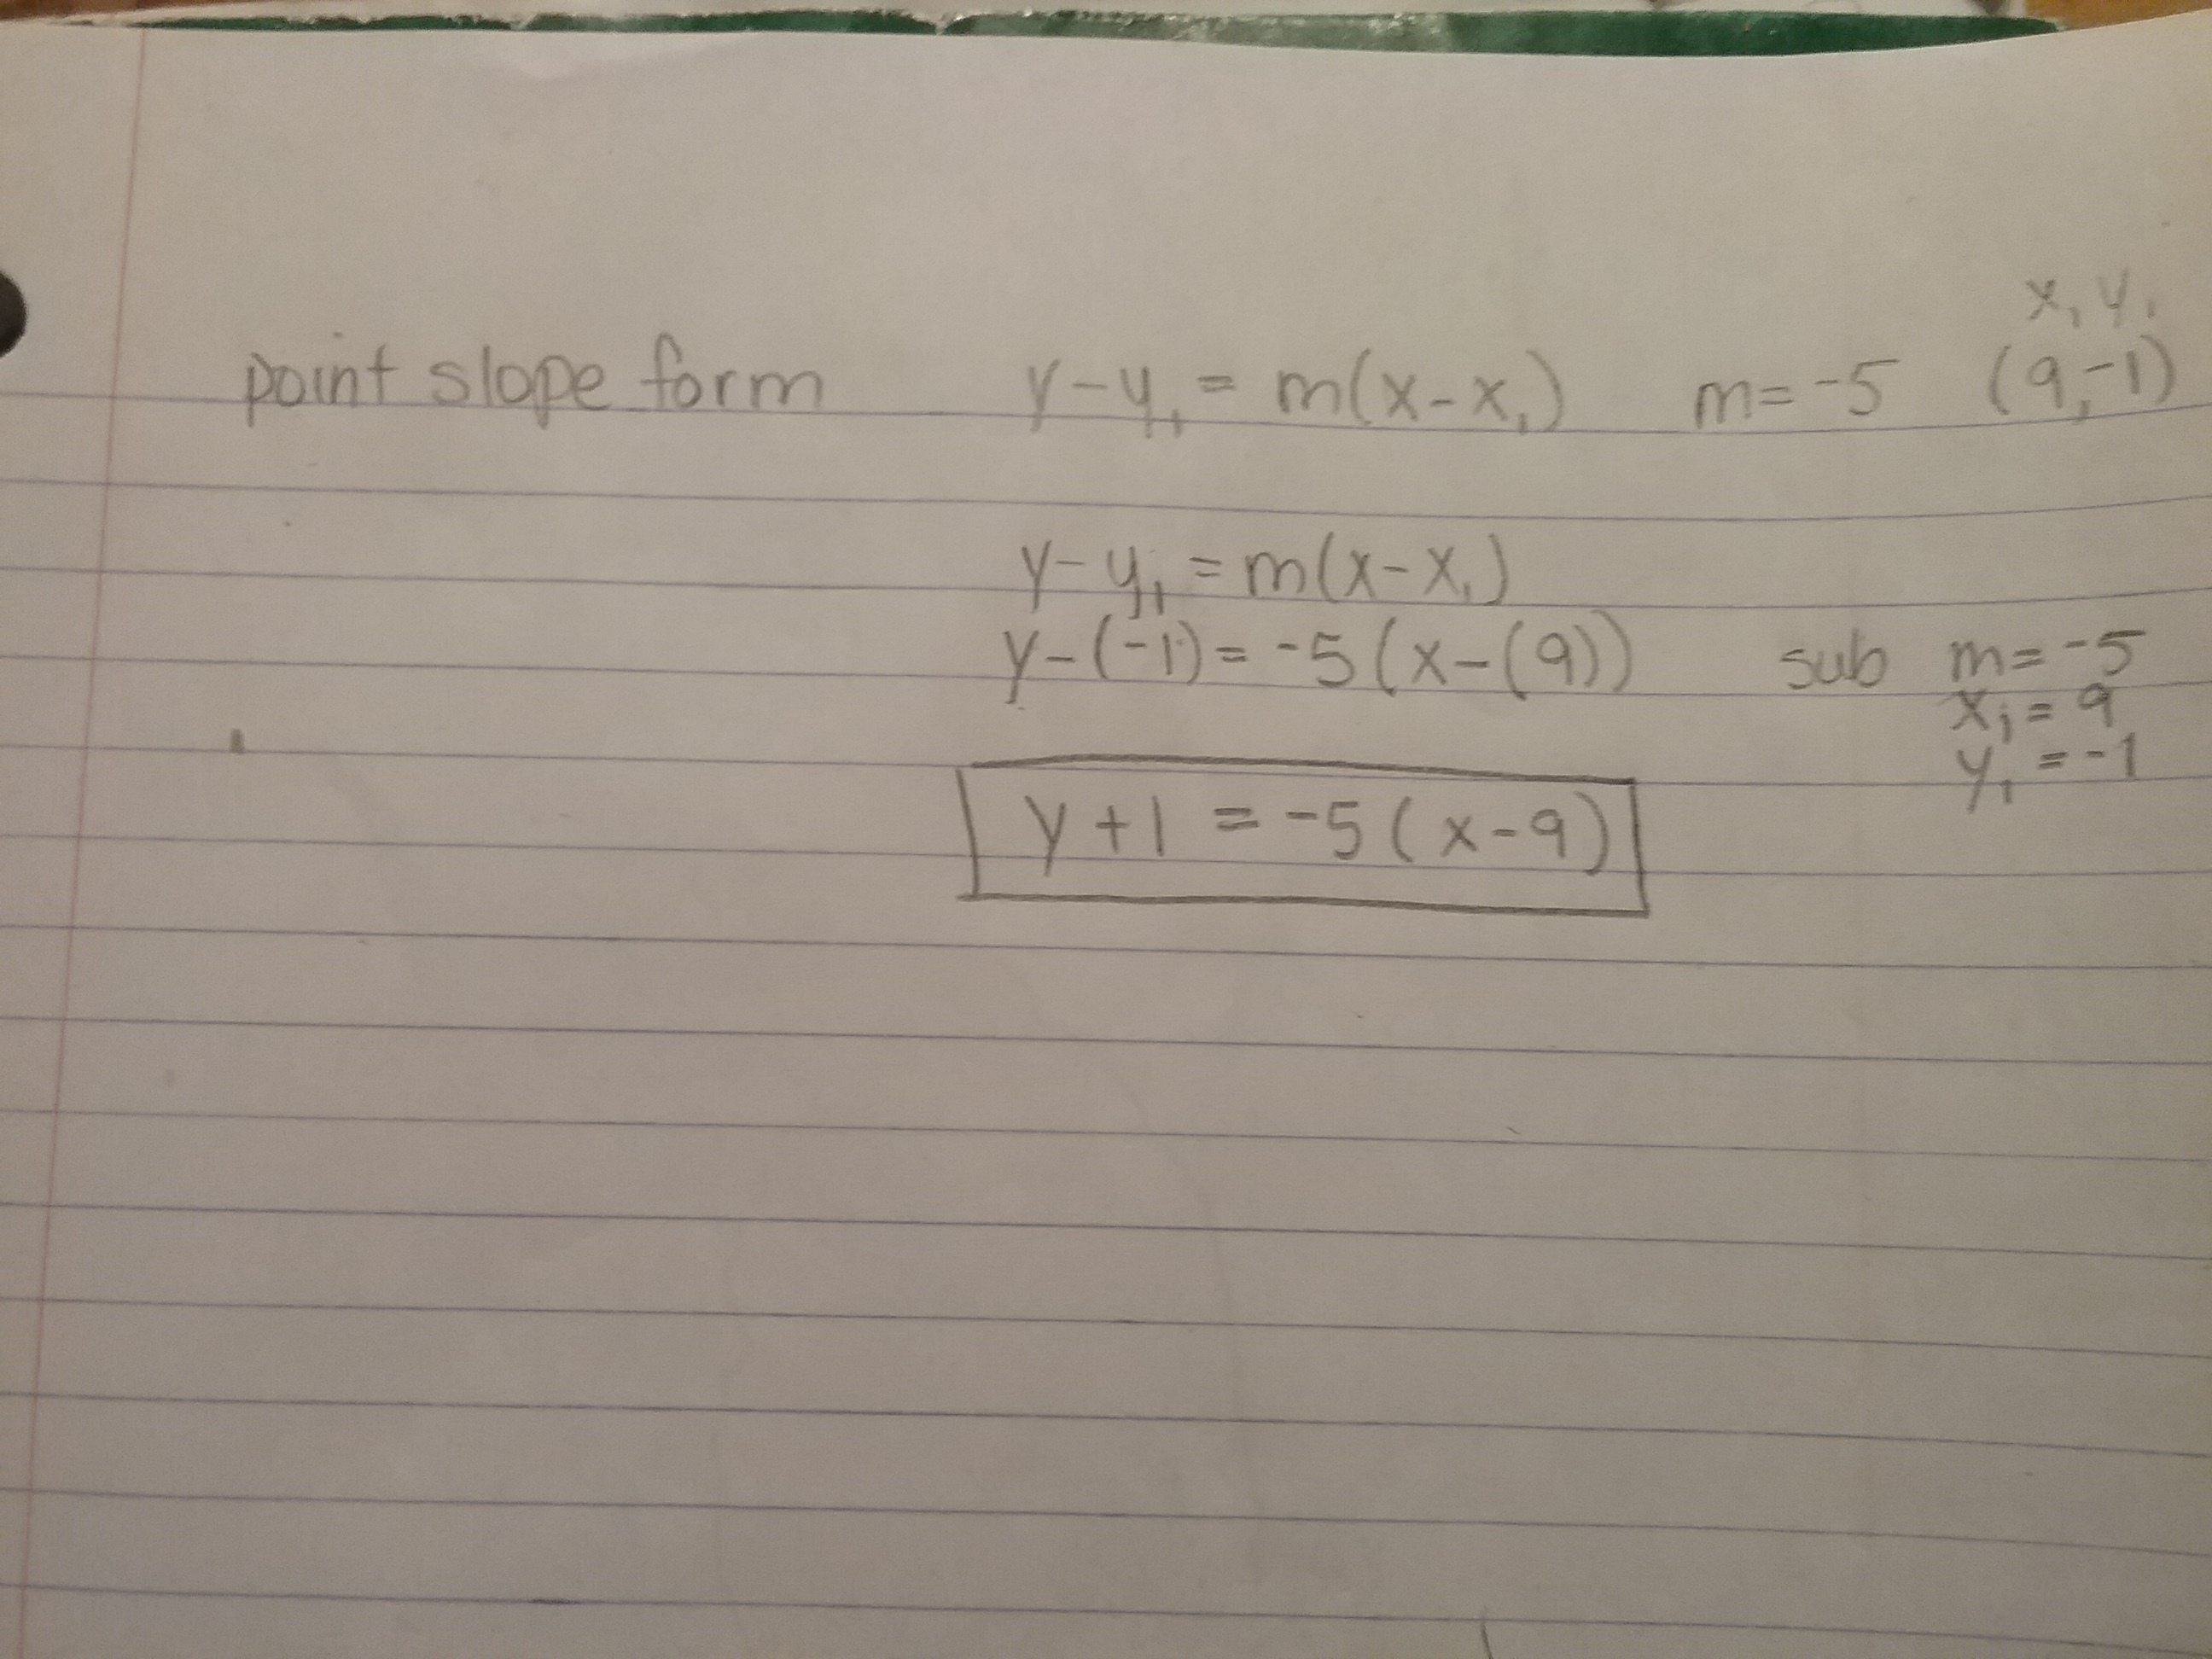 x₁ y₁
point slope form y-y₁ = m(x-x₁) m=-5 (9,-1)
y-y₁ = m(x-x₁)
y-(-1) = -5(x-(9)) sub m=-5
x₁=9
y₁=-1
y+1 = -5(x-9)